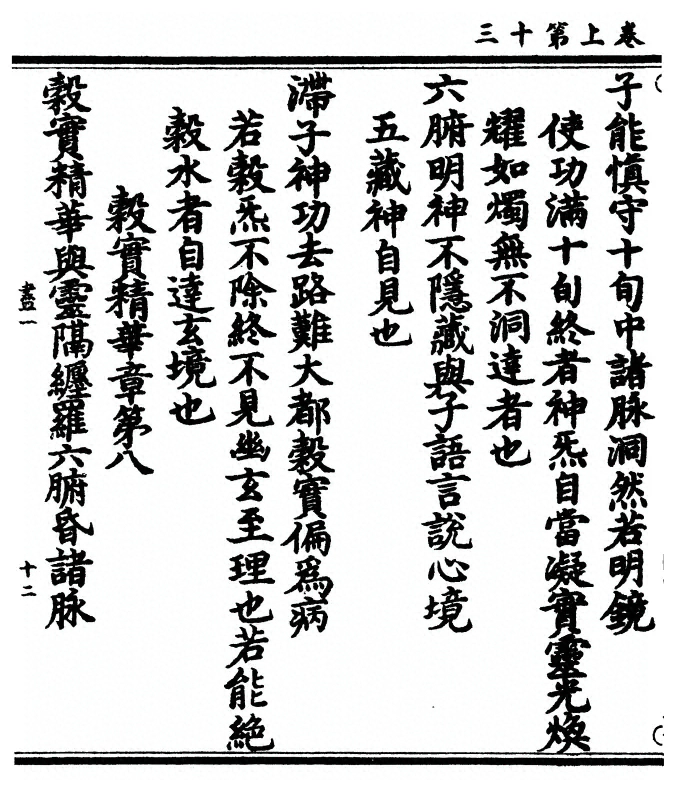 卷上第十三
子能慎守十旬中諸脉洞然若明鏡
使功滿十旬終者神炁自當凝實靈光煥
耀如燭無不洞達者也
六腑明神不隱藏與子語言說心境
五藏神自見也
滯子神功去路難大都穀實偏爲病
若穀炁不除終不見幽玄至理也若能絶
穀水者自達玄境也
穀實精華章第八
穀實精華與靈隔纏羅六腑昏諸脉
十二